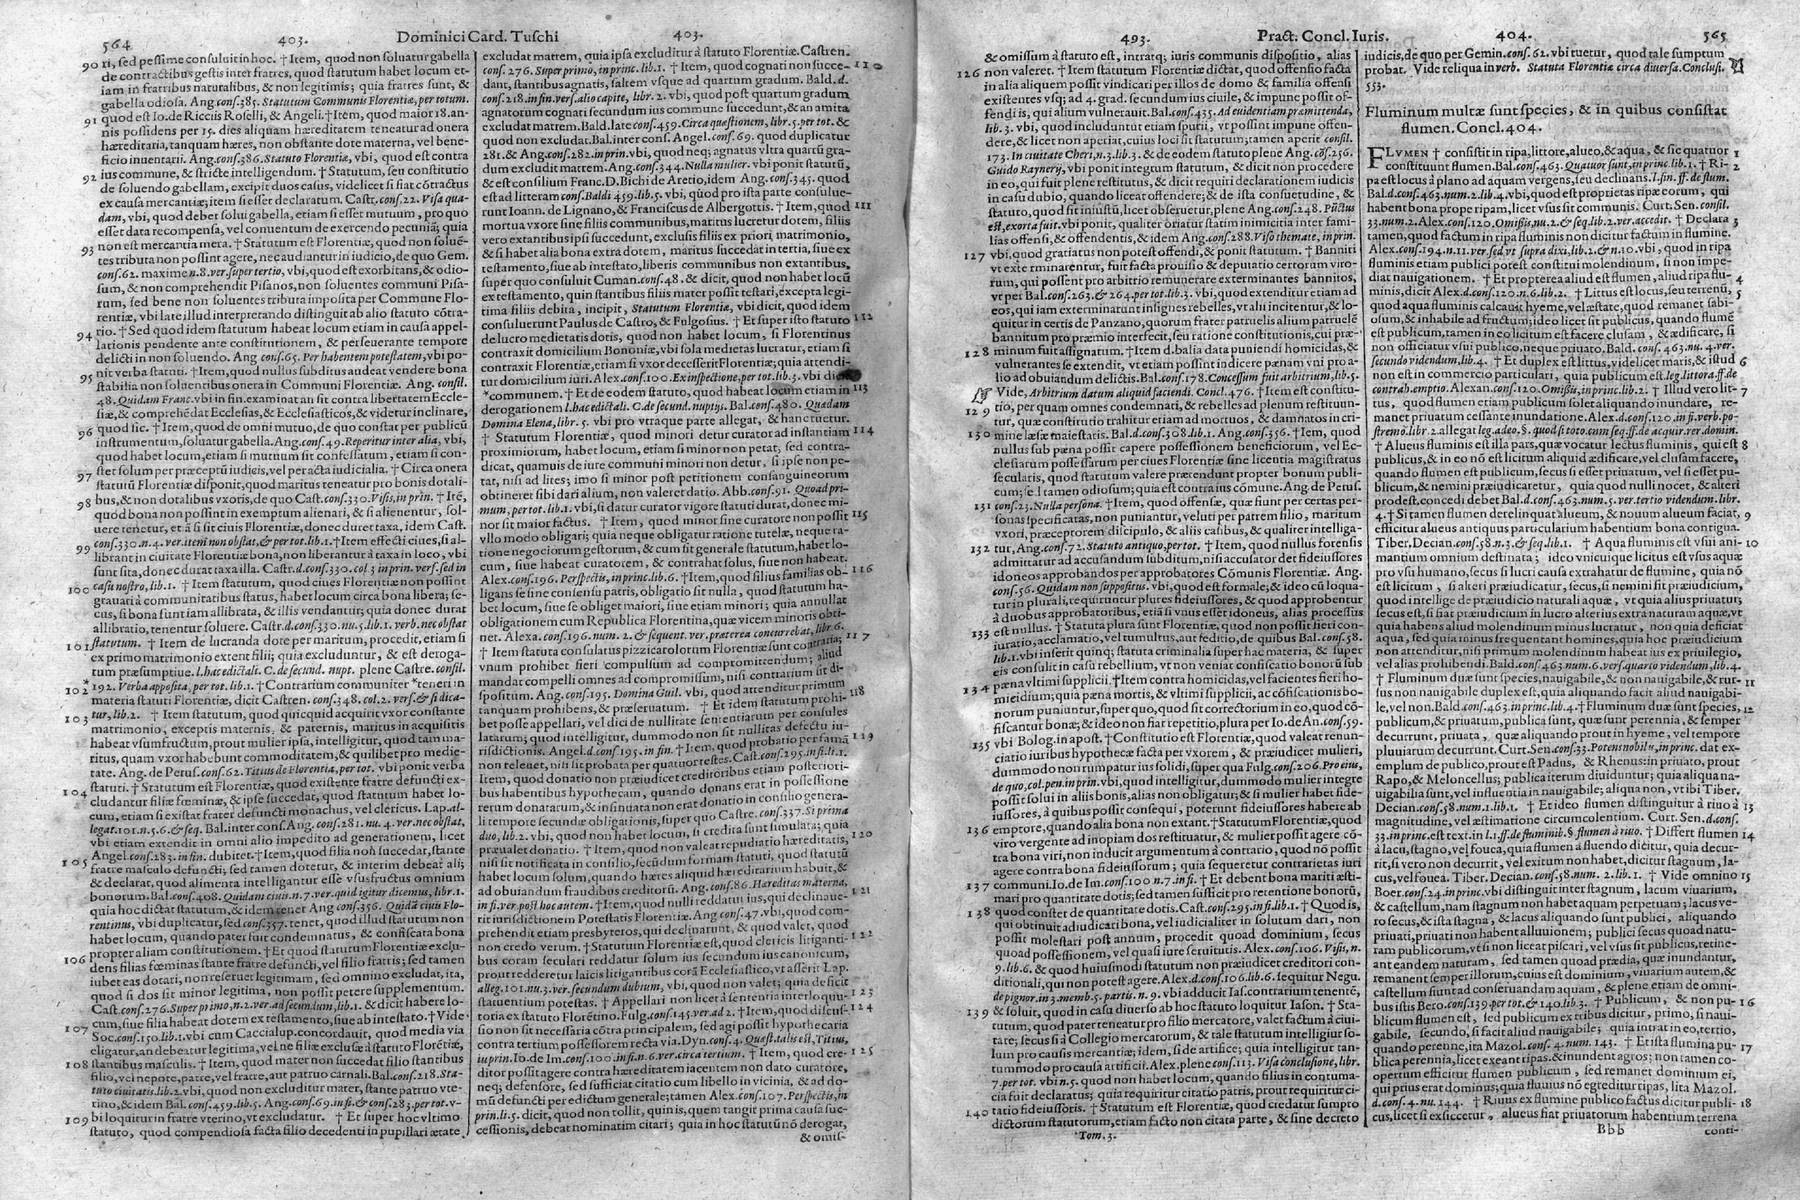 564 403. Dominici Card. Tuschi 403.
90 ri, sed pessime consuluit in hoc. † Item, quod non soluatur gabella
de contractibus gestis inter fratres, quod statutum habet locum et-
iam in fratribus naturalibus, & non legitimis; quia fratres sunt, &
gabella odiosa. Ang. cons. 385. Statutum Communis Florentiæ, per totum.
91 quod est Io. de Ricciis Roselli, & Angeli. † Item, quod maior 18. an-
nis possidens per 15. dies aliquam hæreditatem teneatur ad onera
hæreditaria, tanquam hæres, non obstante dote materna, vel bene-
ficio inuentarii. Ang. cons. 386. Statuto Florentiæ, vbi, quod est contra
ius commune, & stricte intelligendum. † Statutum, seu constitutio
92 de soluendo gabellam, excipit duos casus, videlicet si fiat cōtractus
ex causa mercantiæ; item si esset declaratum. Castr. cons. 22. Visa qua-
dam, vbi, quod debet solui gabella, etiam si esset mutuum, pro quo
esset data recompensa, vel conuentum de exercendo pecunia; quia
93 non est mercantia mera. † Statutum est Florentiæ, quod non soluē-
tes tributa non possint agere, nec audiantur in iudicio, de quo Gem.
cons. 62. maxime n. 8. ver. super tertio, vbi, quod est exorbitans, & odio-
sum, & non comprehendit Pisanos, non soluentes communi Pisa-
rum, sed bene non soluentes tributa imposita per Commune Flo-
rentiæ, vbi late illud interpretando distinguit ab alio statuto cōtra-
94 rio. † Sed quod idem statutum habeat locum etiam in causa appel-
lationis pendente ante constitutionem, & perseuerante tempore
delicti in non soluendo. Ang. cons. 65. Per habentem potestatem, vbi po-
95 nit verba statuti. † Item, quod nullus subditus audeat vendere bona
stabilia non soluentibus onera in Communi Florentiæ. Ang. consil.
48. Quidam Franc. vbi in fin. examinat an sit contra libertatem Eccle-
siæ, & comprehēdat Ecclesias, & Ecclesiasticos, & videtur inclinare,
96 quod sic. † Item, quod de omni mutuo, de quo constat per publicū
instrumentum, soluatur gabella. Ang. cons. 49. Reperitur inter alia, vbi,
quod habet locum, etiam si mutuum sit confessatum, etiam si con-
stet solum per præceptū iudicis, vel per acta iudicialia. † Circa onera
97 statutū Florentiæ disponit, quod maritus teneatur pro bonis dotali-
98 bus, & non dotalibus vxoris, de quo Cast. cons. 330. Visis, in prin. † Itē,
quod bona non possint in exemptum alienari, & si alienentur, sol-
uere tenetur, et ā si sit ciuis Florentiæ, donec duret taxa, idem Cast.
99 cons. 330. n. 4. ver. item non obstat, & per tot. lib. 1. † Item effecti ciues, si al-
librant in ciuitate Florentiæ bona, non liberantur à taxa in loco, vbi
sunt sita, donec durat taxa illa. Castr. d. cons. 330. col. 3 in prin. vers. sed in
100 casu nostro, lib. 1. † Item statutum, quod ciues Florentiæ non possint
grauari à communitatibus status, habet locum circa bona libera; se-
cus, si bona sunt iam allibrata, & illis vendantur; quia donec durat
allibratio, tenentur soluere. Castr. d. cons. 330. nu. 5. lib. 1. verb. nec obstat
101 statutum. † Item de lucranda dote per maritum, procedit, etiam si
ex primo matrimonio extent filii; quia excluduntur, & est deroga-
tum præsumptiue. l. hac edictali. C. de secund. nupt. plene Castre. consil.
102 *192. Verba apposita, per tot. lib. 1. † Contrarium communiter *teneri in
materia statuti Florentiæ, dicit Castren. cons. 348. col. 2. vers. & si dica-
103 tur, lib. 2. † Item statutum, quod quicquid acquirit vxor constante
matrimonio, exceptis maternis, & paternis, maritus in acquisitis
habeat vsumfructum, prout mulier ipsa, intelligitur, quod tam ma-
ritus, quam vxor habebunt commoditatem, & quilibet pro medie-
tate. Ang. de Perus. cons. 62. Titius de Florentia, per tot. vbi ponit verba
statuti. † Statutum est Florentiæ, quod existente fratre defuncti ex-
104 cludantur filiæ fœminæ, & ipse succedat, quod statutum habet lo-
cum, etiam si existat frater defuncti monachus, vel clericus. Lap. al-
legat. 101. n. 5. 6. & seq. Bal. inter cons. Ang. cons. 281. nu. 4. ver. nec obstat,
vbi etiam extendit in omni alio impedito ad generationem, licet
Angel. cons. 283. in fin. dubitet. † Item, quod filia non succedat, stante
105 fratre masculo defuncti, sed tamen dotetur, & interim debeat ali;
& declarat, quod alimenta intelligantur esse vsusfructus omnium
bonorum. Bal. cons. 408. Quidam ciuis n. 7. ver. quid igitur dicemus, lib. 1.
quia hoc dictat statutum, & idem tenet Ang cons. 356. Quidā ciuis Flo-
rentinus, vbi duplicatur, sed cons. 357. tenet, quod illud statutum non
habet locum, quando pater fuit condemnatus, & confiscata bona
propter aliam constitutionem. † Et quod statutum Florentiæ exclu-
106 dens filias fœminas stante fratre defuncti, vel filio fratris; sed tamen
iubet eas dotari, non reseruet legitimam, sed omnino excludat, ita,
quod si dos sit minor legitima, non possit petere supplementum.
Cast. cons. 276. Super primo, n. 2. ver. ad secundum, lib. 1. & dicit habere lo-
107 cum, siue filia habeat dotem ex testamento, siue ab intestato. † Vide
Soc. cons. 150. lib. 1. vbi cum Caccialup. concordauit, quod media via
eligatur, an debeatur legitima, vel ne filiæ exclusæ à statuto Florētiæ,
108 stantibus masculis. † Item, quod mater non succedat filio stantibus
filio, vel nepote, patre, vel fratre, aut patruo carnali. Bal. cons. 218. Sta-
tuto ciuitatis lib. 2. vbi, quod non excluditur mater, stante patruo vte-
rino, & idem Bal. cons. 459. lib. 5. Ang. cons. 69. in fi. & cons. 283. per tot. v-
109 bi loquitur in fratre vterino, vt excludatur. † Et super hoc vltimo
statuto, quod compendiosa facta filio decedenti in pupillari ætate
excludat matrem, quia ipsa excluditur à statuto Florentiæ. Castren.
cons. 276. Super primo, in princ. lib. 1. † Item, quod cognati non succe- 110
dant, stantibus agnatis, saltem vsque ad quartum gradum. Bald. d.
cons. 218. in fin. vers. alio capite, libr. 2. vbi, quod post quartum gradum
agnatorum cognati secundum ius commune succedunt, & an amita
excludat matrem. Bald. late cons. 459. Circa quæstionem, lib. 5. per tot. &
quod non excludat. Bal. inter cons. Angel. cons. 69. quod duplicatur
281. & Ang. cons. 282. in prin. vbi, quod neq; agnatus vltra quartū gra-
dum excludit matrem. Ang. cons. 344. Nulla mulier. vbi ponit statutū,
& est consilium Franc. D. Bichi de Aretio, idem Ang. cons. 345. quod
est ad litteram cons. Baldi 459. lib. 5. vbi, quòd pro ista parte consulue-
runt Ioann. de Lignano, & Franciscus de Albergottis. † Item, quod 111
mortua vxore sine filiis communibus, maritus lucretur dotem, filiis
vero extantibus ipsi succedunt, exclusis filiis ex priori matrimonio,
& si habeat alia bona extra dotem, maritus succedat in tertia, siue ex
testamento, siue ab intestato, liberis communibus non extantibus,
super quo consuluit Cuman. cons. 48. & dicit, quod non habet locū
ex testamento, quin stantibus filiis mater possit testari, excepta legi-
tima filiis debita, incipit, Statutum Florentiæ, vbi dicit, quod idem
consuluerunt Paulus de Castro, & Fulgosius. † Et super isto statuto 112
de lucro medietatis dotis, quod non habet locum, si Florentinus
contraxit domicilium Bononiæ, vbi sola medietas lucratur, etiam si
contraxit Florentiæ, etiam si vxor decesserit Florentiæ; quia attendi-
tur domicilium iuri. Alex. cons. 100. Ex inspectione, per tot. lib. 3. vbi
*communem. † Et de eodem statuto, quod habeat locum etiam in 113
derogationem l. hac edictali. C. de secund. nuptijs. Bal. cons. 480. Quadam
Domina Elena, libr. 5. vbi pro vtraque parte allegat, & hanc tuetur.
† Statutum Florentiæ, quod minori detur curator ad instantiam 114
proximiorum, habet locum, etiam si minor non petat; sed contra-
dicat, quamuis de iure communi minori non detur, si ipse non pe-
tat, nisi ad lites; imo si minor post petitionem consanguineorum
obtineret sibi dari alium, non valeret datio. Abb. cons. 91. Quoad pri-
mum, per tot. lib. 1. vbi, si datur curator vigore statuti durat, donec mi-
nor sit maior factus. † Item, quod minor sine curatore non possit 115
vllo modo obligari; quia neque obligatur ratione tutelæ, neque ra-
tione negociorum gestorum, & cum sit generale statutum, habet lo-
cum, siue habeat curatorem, & contrahat solus, siue non habeat.
Alex. cons. 196. Perspectis, in princ. lib. 6. † Item, quod filius familias ob- 116
ligans se sine consensu patris, obligatio sit nulla, quod statutum ha-
bet locum, siue se obliget maiori, siue etiam minori; quia annullat
obligationem cum Republica Florentina, quæ vicem minoris obti-
net. Alexa. cons. 196. num. 2. & sequent. ver. præterea concurrebat, lib. 6.
† Item statuta consulatus pizzicarolorum Florentiæ sunt contraria; 117
vnum prohibet fieri compulsum ad compromittendum; aliud
mandat compelli omnes ad compromissum, nisi contrarium sit di-
spositum. Ang. cons. 195. Domina Guil. vbi, quod attenditur primum
tanquam prohibens, & præseruatum. † Et idem statutum prohi- 118
bet posse appellari, vel dici de nullitate sententiarum per consules
latarum; quod intelligitur, dummodo non sit nullitas defectu iu-
risdictionis. Angel. d. cons. 195. in fin. † Item, quod probatio per famā 119
non releuet, nisi sit probata per quatuor testes. Cast. cons. 295. in fi. li. 1.
Item, quod donatio non præiudicet creditoribus etiam posteriori-
bus habentibus hypothecam, quando donans erat in possessione
rerum donatarum, & insinuata non erat donatio in consilio genera-
li tempore secundæ obligationis, super quo Castre. cons. 337. Si prima
duo, lib. 2. vbi, quod non habet locum, si credita sunt simulata; quia
præualet donatio. † Item, quod non valeat repudiatio hæreditatis, 120
nisi sit notificata in consilio, secūdum formam statuti, quod statutū
habet locum solum, quando hæres aliquid hæreditarium habuit, &
ad obuiandum fraudibus creditorū. Ang. cons. 86. Hæreditas materna,
in fi. ver. post hoc autem. † Item, quod nulli reddatur ius, qui declinaue- 121
rit iurisdictionem Potestatis Florentiæ. Ang. cons. 47. vbi, quod com-
prehendit etiam presbyteros, qui declinarunt, & quod valet, quod
non credo verum. † Statutum Florentiæ est, quod clericis litiganti- 122
bus coram seculari reddatur solum ius secundum ius canonicum,
prout redderetur laicis litigantibus corā Ecclesiastico, vt asserit Lap.
alleg. 101. nu. 3. ver. secundum dubium, vbi, quod non valet; quia deficit
statuentium potestas. † Appellari non licet à sententia interlocu- 123
toria ex statuto Florētino. Fulg. cons. 145. ver. ad 2. † Item, quod discus- 124
sio non sit necessaria cōtra principalem, sed agi possit hypothecaria
contra tertium possessorem recta via. Dyn. cons. 4. Quæst. talis est, Titius,
in prin. Io. de Im. cons. 100. in fi. n. 6. ver. circa tertium. † Item, quod cre- 125
ditor possit agere contra hæreditatem iacentem non dato curatore,
neq; defensore, sed sufficiat citatio cum libello in vicinia, & ad do-
mū defuncti per edictum generale; tamen Alex. cons. 107. Perspectis, in
prin. li. 5. dicit, quod non tollit, quin is, quem tangit prima causa suc-
cessionis, debeat nominatim citari; quia in hoc statutū nō derogat,
& omis-
493. Pract. Concl. Iuris. 404. 565
& omissum à statuto est, intratq; iuris communis dispositio, alias
126 non valeret. † Item statutum Florentiæ dictat, quod offensio facta
in alia aliquem possit vindicari per illos de domo & familia offensi
existentes vsq; ad 4. grad. secundum ius ciuile, & impune possit of-
fendi is, qui alium vulnerauit. Bal. cons. 435. Ad euidentiam præmittenda,
lib. 3. vbi, quod includuntur etiam spurii, vt possint impune offen-
dere, & licet non aperiat, cuius loci sit statutum; tamen aperit consil.
173. In ciuitate Cheri, n. 3. lib. 3. & de eodem statuto plene Ang. cōs. 256.
Guido Raynerij, vbi ponit integrum statutum, & dicit non procedere
in eo, qui fuit plene restitutus, & dicit requiri declarationem iudicis
in casu dubio, quando liceat offendere; & de ista consuetudine, &
statuto, quod sit iniustū, licet obseruetur, plene Ang. cons. 248. Pūctus
est, exorta fuit. vbi ponit, qualiter oriatur statim inimicitia inter fami-
lias offensi, & offendentis, & idem Ang. cons. 288. Viso themate, in prin.
127 vbi, quod gratiatus non potest offendi, & ponit statutum. † Banniti
vt exterminarentur, fuit facta prouisio & deputatio certorum viro-
rum, qui possent pro arbitrio remunerare exterminantes bannitos,
vt per Bal. cons. 263. & 264. per tot. lib. 3. vbi, quod extenditur etiam ad
eos, qui iam exterminarunt insignes rebelles, vt alii incitentur, & lo-
quitur in certis de Panzano, quorum frater patruelis alium patruelē
bannitum pro præmio interfecit, seu ratione constitutionis, cui præ-
128 minum fuit assignatum. † Item d. balia data puniendi homicidas, &
vulnerantes se extendit, vt etiam possint indicere pœnam vni pro a-
lio ad obuiandum delictis. Bal. cons. 178. Concessum fuit arbitrium, lib. 5.
Vide, Arbitrium datum aliquid faciendi. Concl. 476. † Item est constitu-
129 tio, per quam omnes condemnati, & rebelles ad plenum restituun-
tur, quæ constitutio trahitur etiam ad mortuos, & damnatos in cri-
130 mine læsæ maiestatis. Bal. d. cons. 308. lib. 1. Ang. cons. 356. † Item, quod
nullus sub pœna possit capere possessionem beneficiorum, vel Ec-
clesiarum possessarum per ciues Florentiæ sine licentia magistratus
secularis, quod statutum valere prætendunt propter bonum publi-
cum; sed tamen odiosum; quia est contra ius cōmune. Ang. de Perus.
131 cons. 23. Nulla persona. † Item, quod offensæ, quæ fiunt per certas per-
sonas specificatas, non puniantur, veluti per patrem filio, maritum
vxori, præceptorem discipulo, & aliis casibus, & qualiter intelliga-
132 tur, Ang. cons. 72. Statuto antiquo, per tot. † Item, quod nullus forensis
admittatur ad accusandum subditum, nisi accusator det fideiussores
idoneos approbandos per approbatores Cōmunis Florentiæ. Ang.
cons. 56. Quidam non suppositus. vbi, quod est formale; & ideo cū loqua-
tur in plurali, requiruntur plures fideiussores, & quod approbentur
à duobus approbatoribus, etiā si vnus esset idoneus, alias processus
133 est nullus. † Statuta plura sunt Florentiæ, quod non possit fieri con-
iuratio, acclamatio, vel tumultus, aut seditio, de quibus Bal. cons. 58.
lib. 1. vbi inserit quinq; statuta criminalia super hac materia, & super
eis consulit in casu rebellium, vt non veniat confiscatio bonorū sub
134 pœna vltimi supplicii. † Item contra homicidas, vel facientes fieri ho-
micidium; quia pœna mortis, & vltimi supplicii, ac cōfiscationis bo-
norum puniuntur, super quo, quod sit correctorium in eo, quod cō-
fiscantur bona; & ideo non fiat repetitio, plura per Io. de An. cons. 59.
135 vbi Bolog. in apost. † Constitutio est Florentiæ, quod valeat renun-
ciatio iuribus hypothecæ facta per vxorem, & præiudicet mulieri,
dummodo non rumpatur ius solidi, super qua Fulg. cons. 206. Pro eius,
de quo, col. pen. in prin. vbi, quod intelligitur, dummodo mulier integre
possit solui in aliis bonis, alias non obligatur; & si mulier habet fide-
iussores, à quibus possit consequi, poterunt fideiussores habere ab
136 emptore, quando alia bona non extant. † Statutum Florentiæ, quod
viro vergente ad inopiam dos restituatur, & mulier possit agere cō-
tra bona viri, non inducit argumentum à contrario, quod nō possit
agere contra bona fideiussorum; quia sequeretur contrarietas iuri
137 communi. Io. de Im. cons. 100 n. 7. in fi. † Et debent bona mariti æsti-
mari pro quantitate dotis; sed tamen sufficit pro retentione bonorū,
138 quod constet de quantitate dotis. Cast. cons. 295. in fi. lib. 1. † Quod is,
qui obtinuit adiudicati bona, vel iudicialiter in solutum dari, non
possit molestari post annum, procedit quoad dominium, secus
quoad possessionem, vel quasi iure seruitutis. Alex. cons. 106. Visis, n.
9. lib. 6. & quod huiusmodi statutum non præiudicet creditori con-
ditionali, qui non potest agere. Alex. d. cons. 106. lib. 6. sequitur Negu.
de pignor. in 3. memb. 5. partis. n. 9. vbi adducit Ias. contrarium tenentē,
139 & soluit, quod in casu diuerso ab hoc statuto loquitur Iason. † Sta-
tutum, quod pater teneatur pro filio mercatore, valet factum à ciui-
tate; secus si à Collegio mercatorum, & tale statutum intelligitur so-
lum pro causis mercantiæ; idem, si de artifice; quia intelligitur tan-
tummodo pro causa artificii. Alex. plene cons. 113. Visa conclusione, libr.
7. per tot. vbi n. 5. quod non habet locum, quando filius in contuma-
cia fuit declaratus; quia requiritur citatio patris, prout requiritur ci-
140 tatio fideiussoris. † Statutum est Florentiæ, quod credatur sumpto
dictorum statutorum, etiam facto non citata parte, & sine decreto
Tom. 3.
iudicis, de quo per Gemin. cons. 62. vbi tuetur, quod tale sumptum
probat. Vide reliqua in verb. Statuta Florentiæ circa diuersa. Conclusi.
553.
Fluminum multæ sunt species, & in quibus consistat
flumen. Concl. 404.
FLVMEN † consistit in ripa, littore, alueo, & aqua, & sic quatuor 1
constituunt flumen. Bal. cons. 463. Quatuor sunt, in princ. lib. 1. † Ri- 2
pa est locus à plano ad aquam vergens, seu declinans. l. fin. ff. de flum.
Bal. d. cons. 463. num. 2. lib. 4. vbi, quod est proprietas ripæ eorum, qui
habent bona prope ripam, licet vsus sit communis. Curt. Sen. consil.
33. num. 2. Alex. cons. 120. Omissis, nu. 2. & seq. lib. 2. ver. accedit. † Declara 3
tamen, quod factum in ripa fluminis non dicitur factum in flumine.
Alex. cons. 194. n. 11. ver. sed vt supra dixi, lib. 2. & n. 10. vbi, quod in ripa
fluminis etiam publici potest constitui molendinum, si non impe-
diat nauigationem. † Et propterea aliud est flumen, aliud ripa flu- 4
minis, dicit Alex. d. cons. 120. n. 6. lib. 2. † Littus est locus, seu terrenū, 5
quod aqua fluminis calcauit hyeme, vel æstate, quod remanet sabi-
osum, & inhabile ad fructum; ideo licet sit publicus, quando flumē
est publicum, tamen in eo licitum est facere clusam, & ædificare, si
non officiatur vsui publico, neque priuato. Bald. cons. 463. nu. 4. ver.
secundo videndum, lib. 4. † Et duplex est littus, videlicet maris, & istud 6
non est in commercio particulari, quia publicum est. leg. littora. ff. de
contrah. emptio. Alexan. cons. 120. Omissis, in princ. lib. 2. † Illud vero lit- 7
tus, quod flumen etiam publicum solet aliquando inundare, re-
manet priuatum cessante inundatione. Alex. d. cons. 120. in fi. verb. po-
stremo. libr. 2. allegat leg. adeo. §. quod si toto. cum seq. ff. de acquir. rer. domin.
† Alueus fluminis est illa pars, quæ vocatur lectus fluminis, qui est 8
publicus, & in eo nō est licitum aliquid ædificare, vel clusam facere,
quando flumen est publicum, secus si esset priuatum, vel si esset pu-
blicum, & nemini præiudicaretur, quia quod nulli nocet, & alteri
prodest, concedi debet Bal. d. cons. 463. num. 5. ver. tertio videndum. libr.
4. † Si tamen flumen derelinquat alueum, & nouum alueum faciat, 9
efficitur alueus antiquus particularium habentium bona contigua.
Tiber. Decian. cons. 58. n. 3. & seq. lib. 1. † Aqua fluminis est vsui ani- 10
mantium omnium destinata; ideo vnicuique licitus est vsus aquæ
pro vsu humano, secus si lucri causa extrahatur de flumine, quia nō
licet, si alteri præiudicetur, secus, si nemini sit præiudicium,
quod intellige de priuatione naturali aquæ, vt quia alius priuatur;
secus est, si fiat præiudicium in lucro alterius extra natura aquæ, vt
quia habens aliud molendinum minus lucratur, non quia deficiat
aqua, sed quia minus frequentant homines, quia hoc præiudicium
non attenditur, nisi primum molendinum haberet ius ex priuilegio,
vel alias prohibendi. Bald. cons. 463 num. 6. vers. quarto videndum, lib. 4.
† Fluminum duæ sunt species, nauigabile, & non nauigabile, & rur- 11
sus non nauigabile duplex est, quia aliquando facit aliud nauigabi-
le, vel non. Bald. cons. 463. in princ. lib. 4. † Fluminum duæ sunt species, 12
publicum, & priuatum, publica sunt, quæ sunt perennia, & semper
decurrunt, priuata, quæ aliquando prout in hyeme, vel tempore
pluuiarum decurrunt. Curt. Sen. cons. 33. Potens nobilis, in princ. dat ex-
emplum de publico, prout est Padus, & Rhenus: in priuato, prout
Rapo, & Meloncellus; publica iterum diuiduntur; quia aliqua na-
uigabilia sunt, vel influentia in nauigabile; aliqua non, vt ibi Tiber.
Decian. cons. 58. num. 1. lib. 1. † Et ideo flumen distinguitur à riuo à 13
magnitudine, vel æstimatione circumcolentium. Curt. Sen. d. cons.
33. in princ. est text. in l. 1. ff. de fluminib. §. flumen à riuo. † Differt flumen 14
à lacu, stagno, vel fouea, quia flumen à fluendo dicitur, quia decur-
rit, si vero non decurrit, vel exitum non habet, dicitur stagnum, la-
cus, vel fouea. Tiber. Decian. cons. 58. num. 2. lib. 1. † Vide omnino 15
Boer. cons. 24. in princ. vbi distinguit inter stagnum, lacum viuarium,
& castellum, nam stagnum non habet aquam perpetuam; lacus ve-
ro secus, & ista stagna, & lacus aliquando sunt publici, aliquando
priuati, priuati non habent alluuionem; publici secus quoad natu-
ram publicorum, vt si non liceat piscari, vel vsus sit publicus, retine-
ant eandem naturam, sed tamen quoad prædia, quæ inundantur,
remanent semper illorum, cuius est dominium, viuarium autem, &
castellum sunt ad conseruandam aquam, & plene etiam de omni-
bus istis Bero. cons. 139. per tot. & 140. lib. 3. † Publicum, & non pu- 16
blicum flumen est, sed publicum ex tribus dicitur, primo, si naui-
gabile, secundo, si facit aliud nauigabile; quia intrat in eo, tertio,
quando perenne, ita Mazol. cons. 4. num. 143. † Et ista flumina pu- 17
blica perennia, licet exeant ripas, & inundent agros; non tamen co-
opertum efficitur flumen publicum, sed remanet dominium ei,
qui prius erat dominus; quia fluuius nō egreditur ripas, ita Mazol.
d. cons. 4. nu. 144. † Riuus ex flumine publico factus dicitur publi- 18
cus, licet si exsiccetur, alueus fiat priuatorum habentium terrena
Bbb conti-